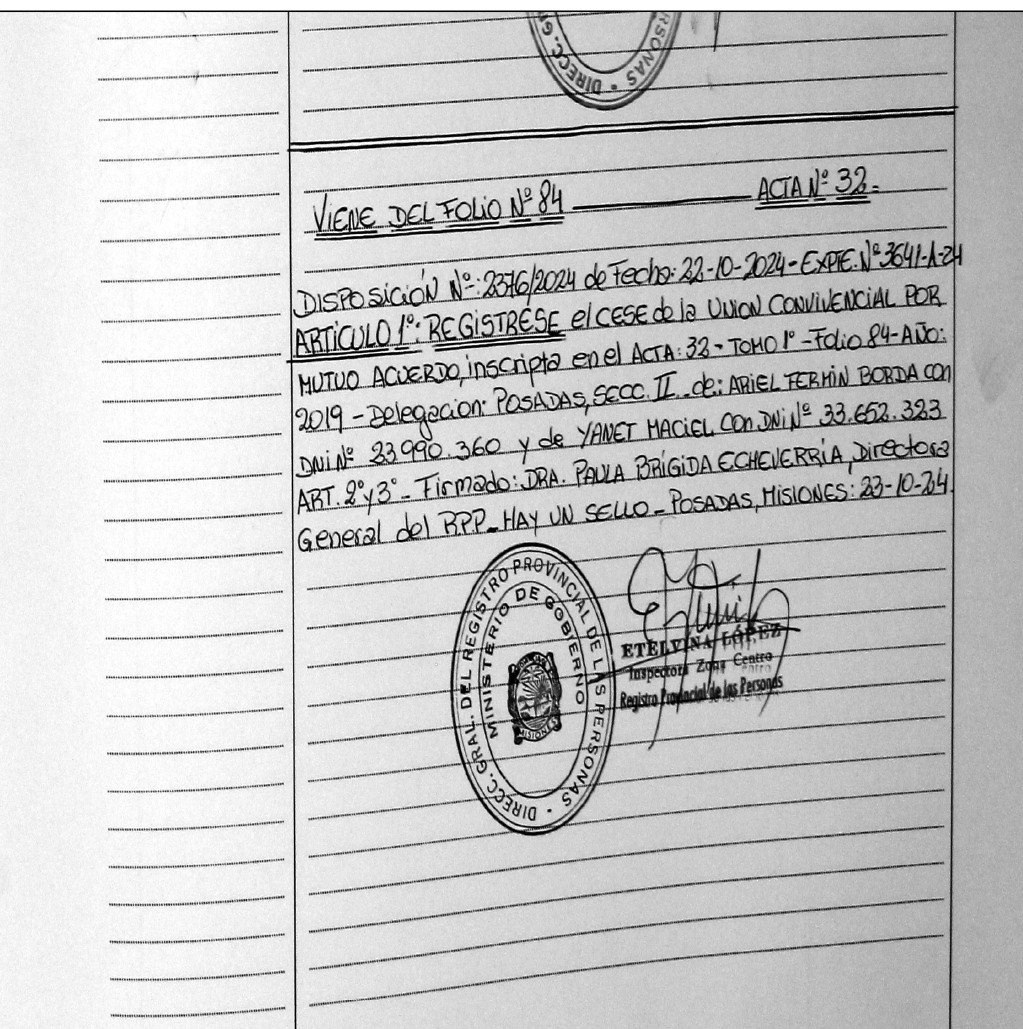 DIRECC. GR
RSONAS
VIENE DEL FOLIO Nº 84 ACTA Nº 32.-
DISPOSICIÓN Nº: 2376/2024 de Fecha: 22-10-2024 - EXPTE. Nº 3641-A-24
ARTICULO 1º: REGISTRESE el CESE de la UNION CONVIVENCIAL POR
MUTUO ACUERDO, inscripta en el ACTA: 32 - TOMO 1º - Folio 84 - AÑO:
2019 - Delegacion: POSADAS, SECC. II. de: ARIEL FERMIN BORDA con
DNI Nº 23.990.360 y de YANET MACIEL con DNI Nº 33.652.323
ART. 2º y 3º - Firmado: DRA. PAULA BRIGIDA ECHEVERRÍA, Directora
General del RPP - HAY UN SELLO - POSADAS, MISIONES: 23-10-24.
DIRECC. GRAL. DEL REGISTRO PROVINCIAL DE LAS PERSONAS
MINISTERIO DE GOBIERNO
MISIONES
ETELVINA LÓPEZ
Inspectora Zona Centro
Registro Provincial de las Personas